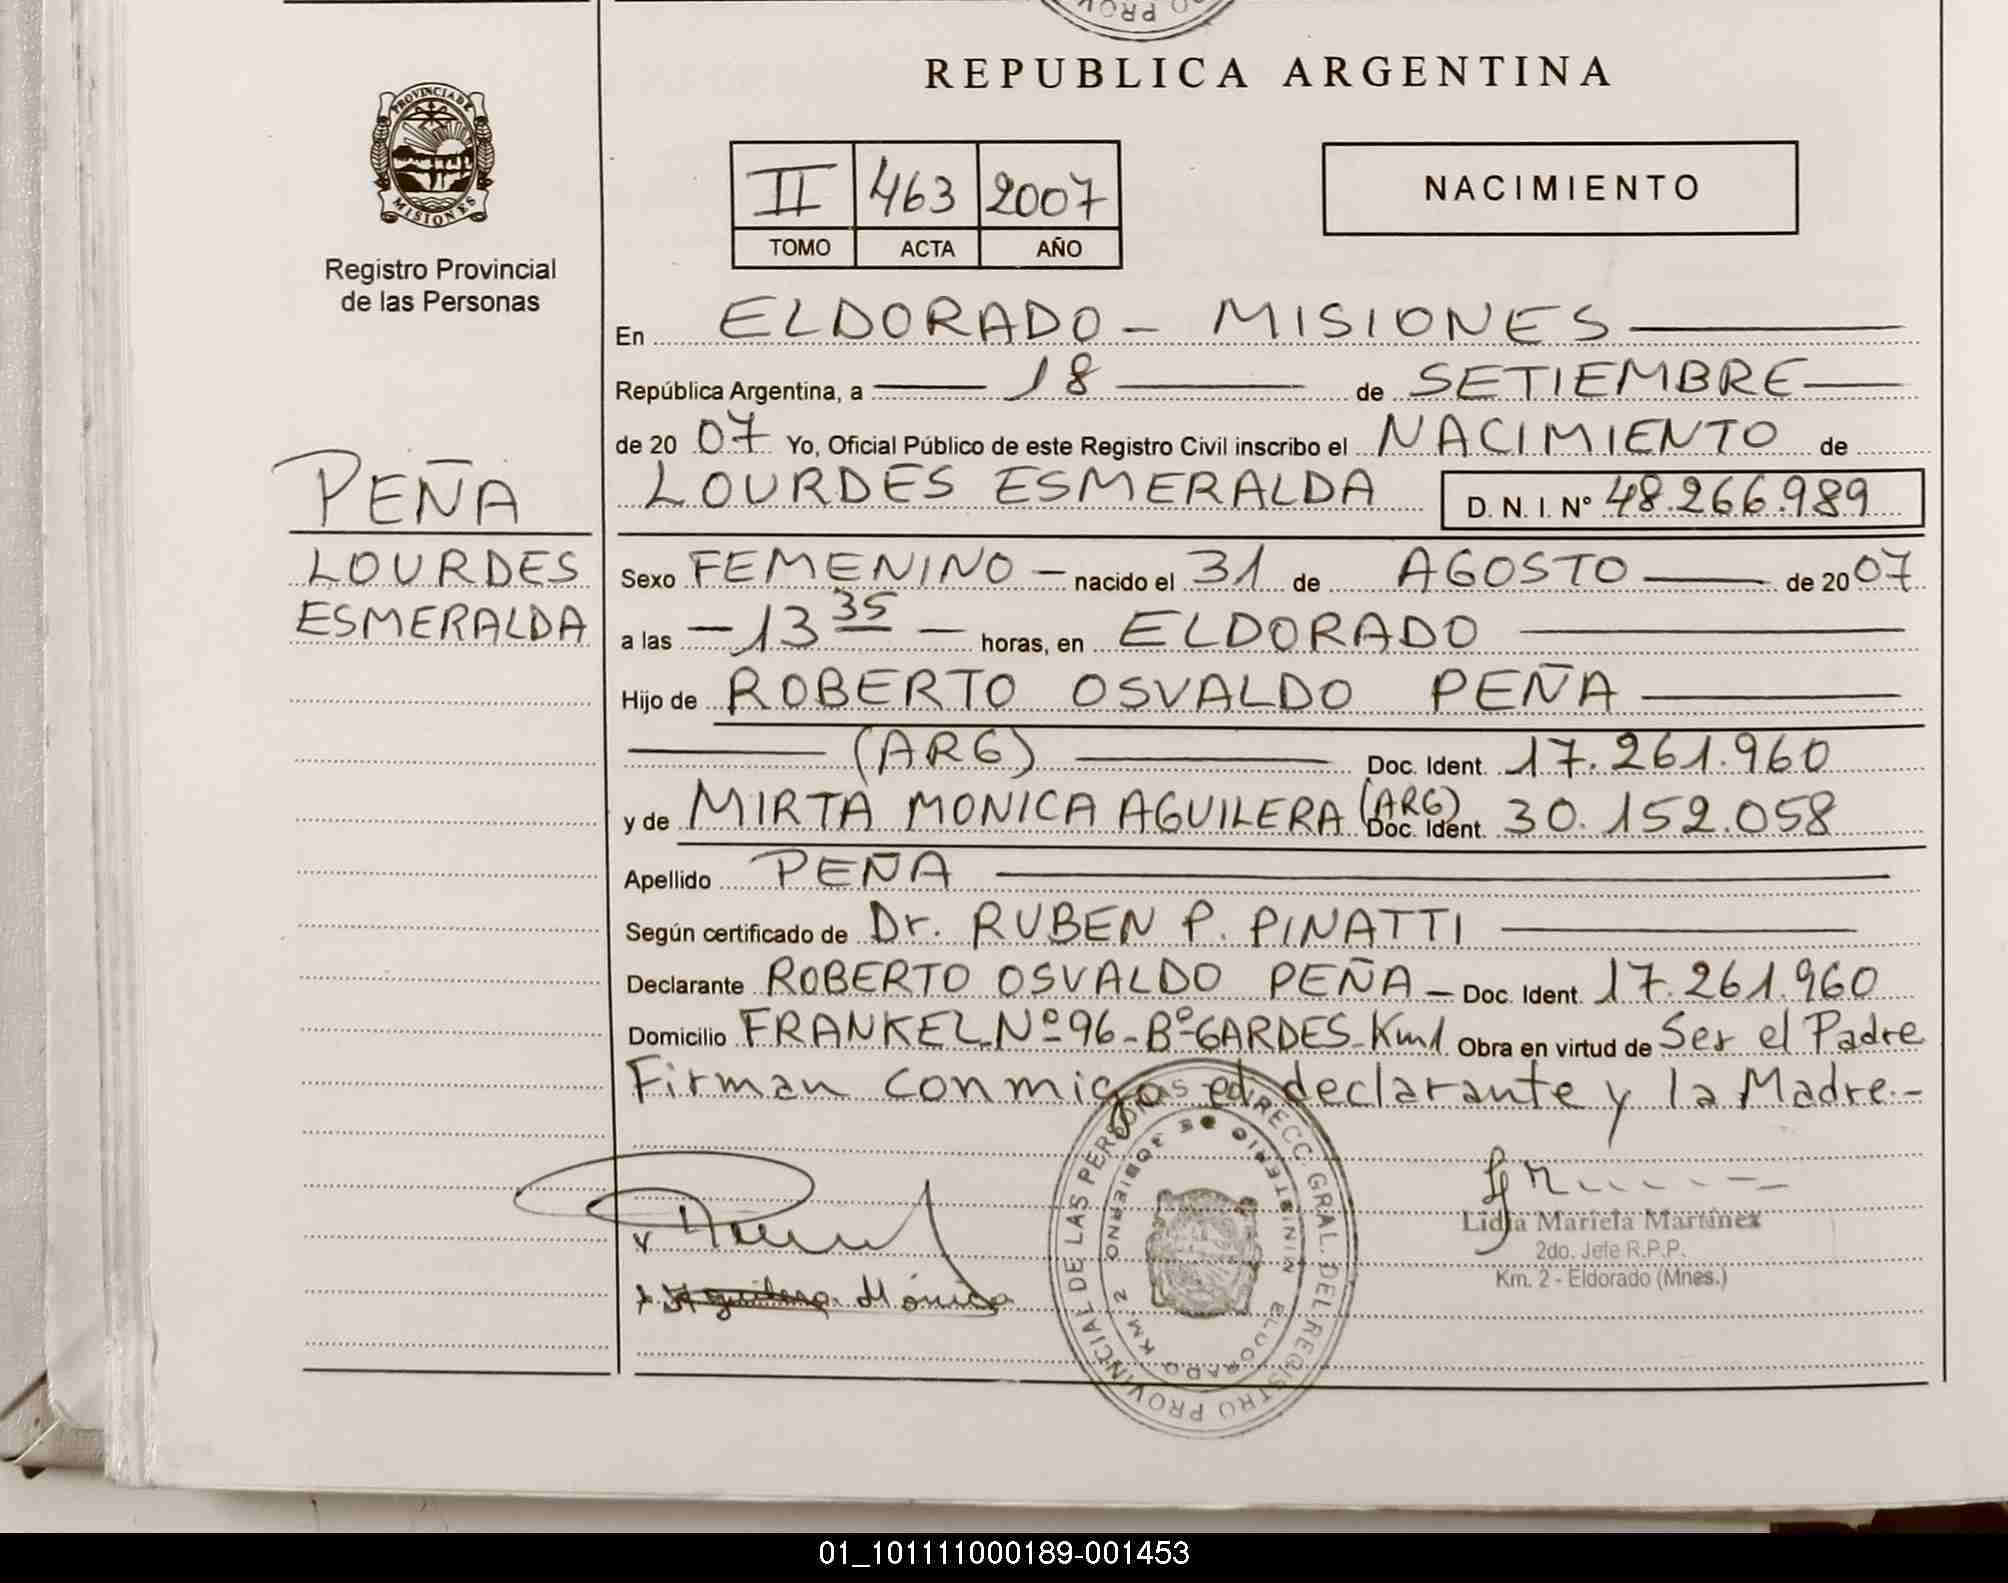 REPUBLICA ARGENTINA
PROVINCIA DE MISIONES
Registro Provincial
de las Personas
II 463 2007
TOMO ACTA AÑO
NACIMIENTO
En ELDORADO - MISIONES
República Argentina, a 18 de SETIEMBRE
de 2007 Yo, Oficial Público de este Registro Civil inscribo el NACIMIENTO de
LOURDES ESMERALDA D. N. I. Nº 48.266.989
PEÑA
LOURDES
ESMERALDA
Sexo FEMENINO - nacido el 31 de AGOSTO de 2007
a las - 13 35 - horas, en ELDORADO
Hijo de ROBERTO OSVALDO PEÑA
(ARG) Doc. Ident. 17.261.960
y de MIRTA MONICA AGUILERA (ARG) Doc. Ident. 30.152.058
Apellido PEÑA
Según certificado de Dr. RUBEN P. PINATTI
Declarante ROBERTO OSVALDO PEÑA - Doc. Ident. 17.261.960
Domicilio FRANKEL Nº 96 - Bº GARDES - Km 1 Obra en virtud de Ser el Padre
Firman conmigo el declarante y la Madre.-
Mónica
DIRECC. GRAL. DEL REGISTRO PROVINCIAL DE LAS PERSONAS
MINISTERIO DE GOBIERNO
ELDORADO KM 2
Lidia Mariela Martínez
2do. Jefe R.P.P.
Km. 2 - Eldorado (Mnes.)
01_101111000189-001453